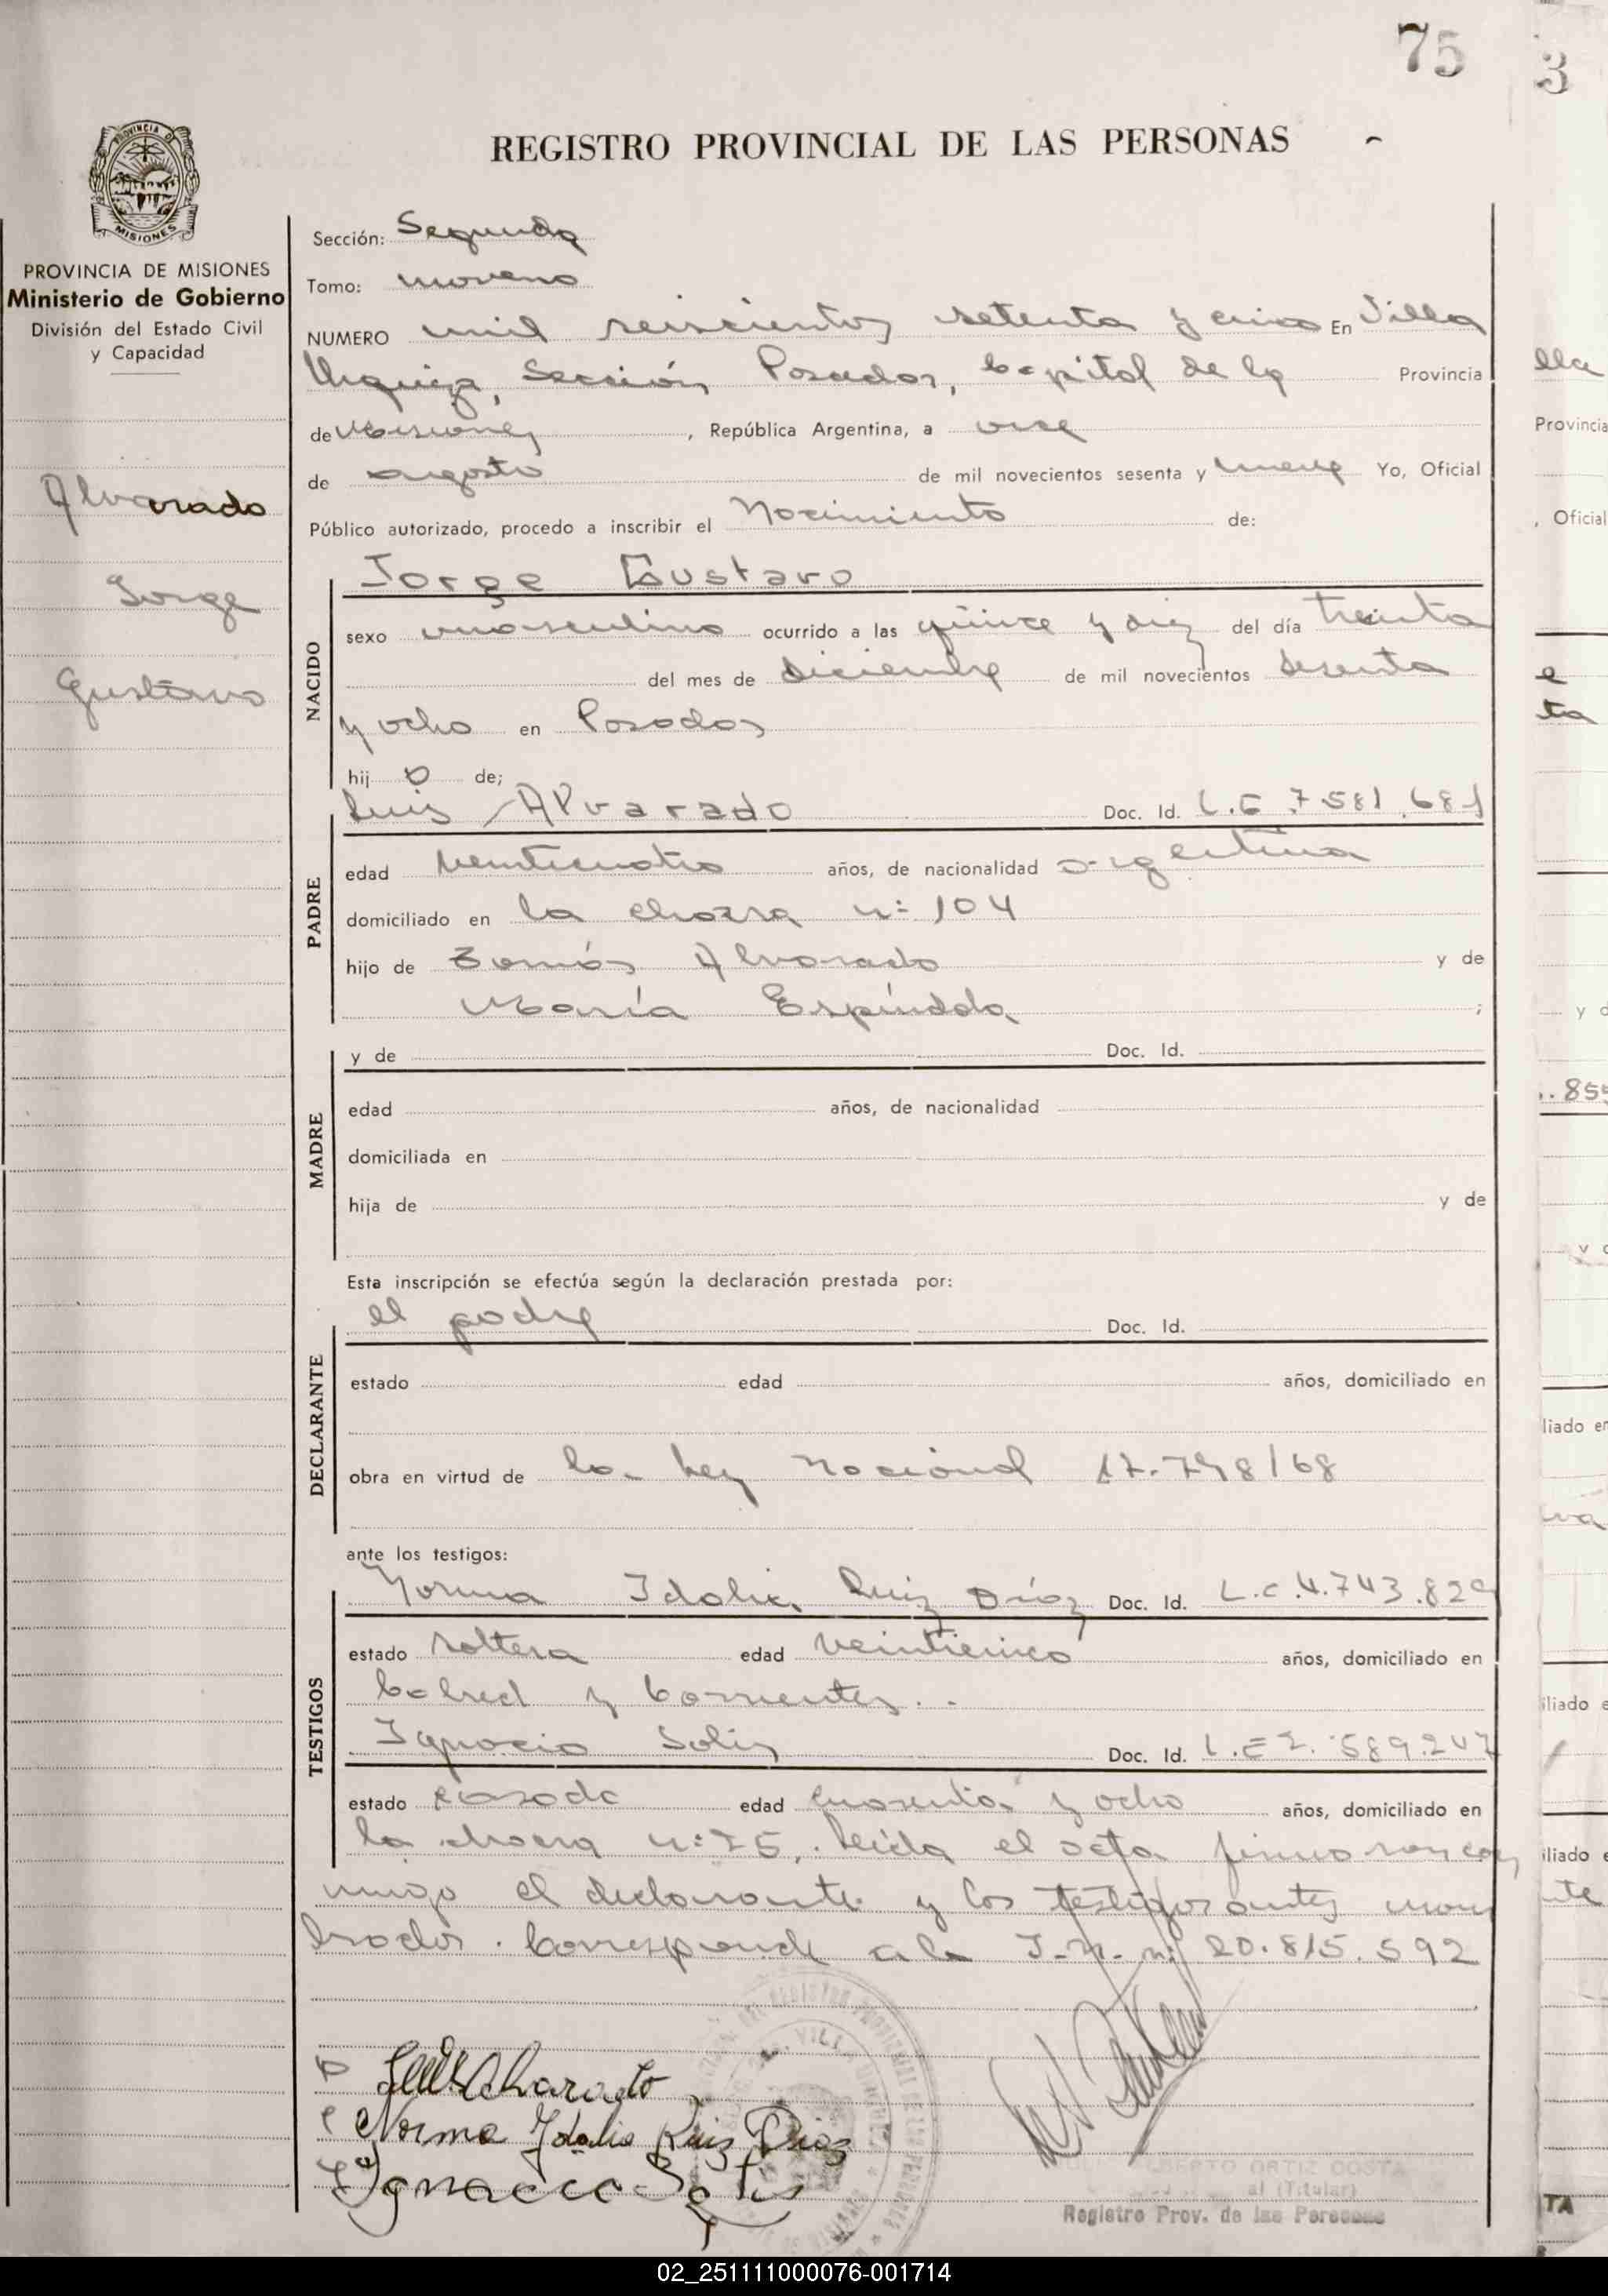 75
3
REGISTRO PROVINCIAL DE LAS PERSONAS
PROVINCIA DE
MISIONES
PROVINCIA DE MISIONES
Ministerio de Gobierno
División del Estado Civil
y Capacidad
Alvarado
Jorge
Gustavo
Sección: Segunda
Tomo: noveno
NUMERO mil seiscientos setenta y cinco En Villa
Urquiza, Sección Posadas, Capital de la Provincia
de Misiones, República Argentina, a once
de agosto de mil novecientos sesenta y nueve Yo, Oficial
Público autorizado, procedo a inscribir el Nacimiento de:
Jorge Gustavo
NACIDO
sexo masculino ocurrido a las quince y diez del día treinta
del mes de diciembre de mil novecientos sesenta
y ocho en Posadas
hij o de;
Luis Alvarado Doc. Id. L.E 7.581.681
PADRE
edad veinticuatro años, de nacionalidad argentina
domiciliado en la chacra nº 104
hijo de Tomás Alvarado y de
María Espíndola ;
MADRE
y de Doc. Id.
edad años, de nacionalidad
domiciliada en
hija de y de
Esta inscripción se efectúa según la declaración prestada por:
el padre Doc. Id.
DECLARANTE
estado edad años, domiciliado en
obra en virtud de la Ley Nacional 17.748/68
ante los testigos:
Norma Idalia Ruiz Díaz Doc. Id. L.C 4.743.829
TESTIGOS
estado soltera edad veinticinco años, domiciliado en
Cabred y Corrientes.
Ignacio Solis Doc. Id. L.E 589.247
estado casado edad cuarenta y ocho años, domiciliado en
la chacra nº 75, leída el acta firmaron con
migo el declarante y los testigos antes nom
brados. Corresponde a la I.N. nº 20.815.592
Luis Alvarado
Norma Idalia Ruiz Diaz
Ignacio Solis
ALBERTO ORTIZ COSTA
al (Titular)
Registro Prov. de las Personas
lla
Provincia
, Oficial
e
ta
y d
. 855
liado en
iliado e
iliado e
nte
TA
02_251111000076-001714